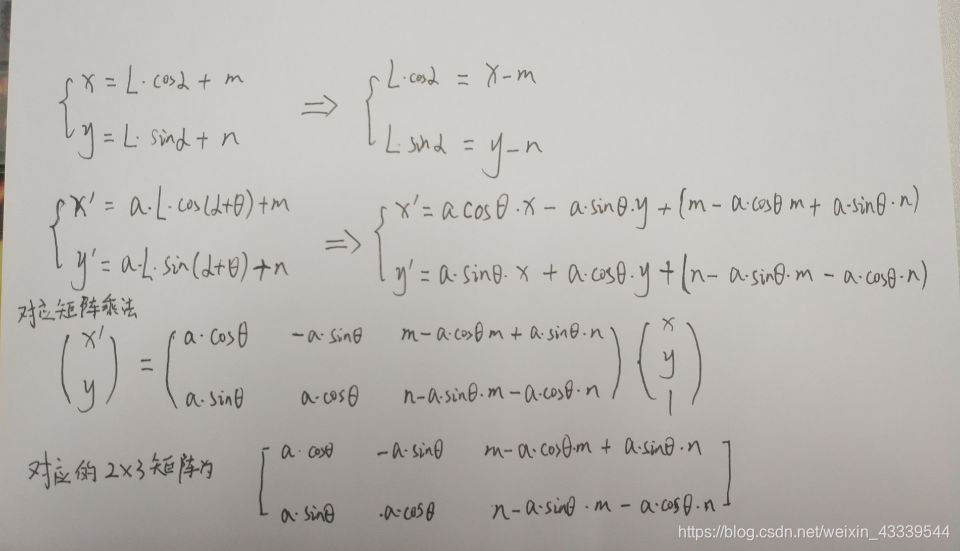 x = L·cosα + m ⇒ L·cosα = x-m
y = L·sinα + n L·sinα = y-n
x' = a·L·cos(α+θ)+m ⇒ x' = a cosθ·x - a·sinθ·y + (m - a·cosθ m + a·sinθ·n)
y' = a·L·sin(α+θ)+n y' = a·sinθ·x + a·cosθ·y + (n - a·sinθ·m - a·cosθ·n)
对应矩阵乘法
x' a·cosθ -a·sinθ m-a·cosθ m + a·sinθ·n x
= y
y a·sinθ a·cosθ n-a·sinθ·m - a·cosθ·n 1
对应的2×3矩阵为 a·cosθ -a·sinθ m-a·cosθ·m + a·sinθ·n
a·sinθ ·a·cosθ n-a·sinθ·m - a·cosθ·n
https://blog.csdn.net/weixin_43339544